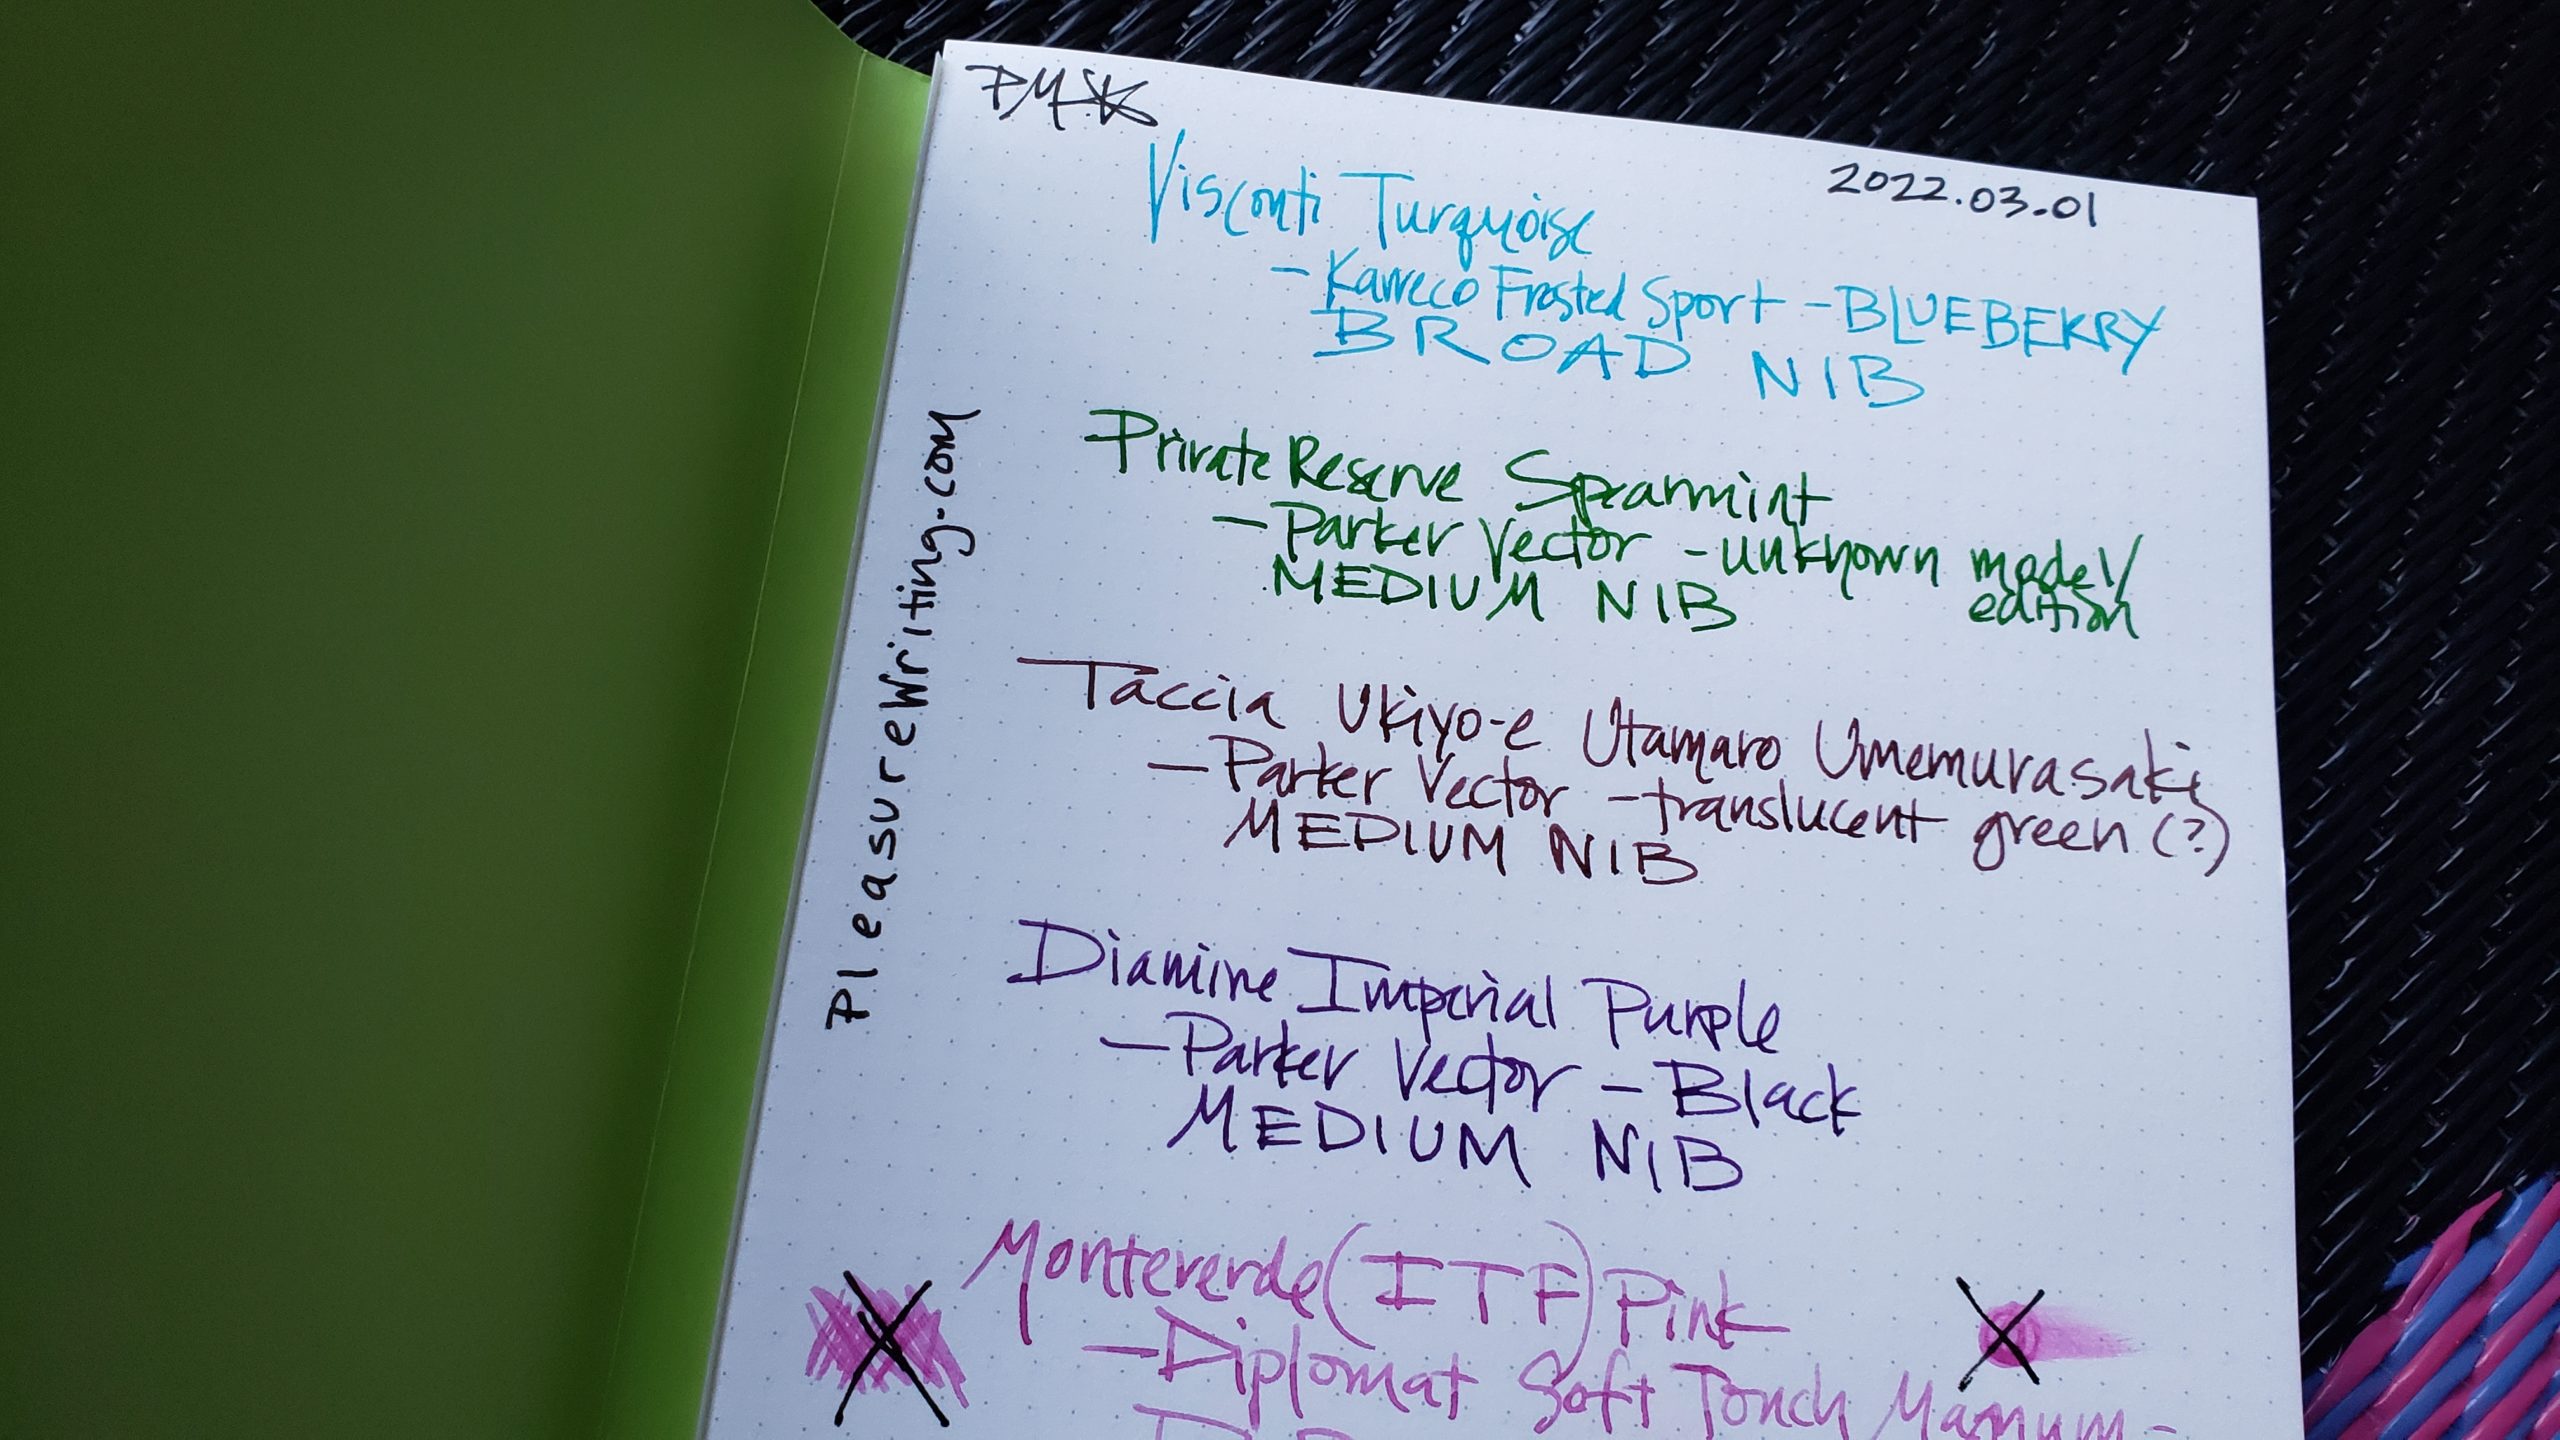 2022.03.01
Visconti Turquoise
- Kaweco Frosted Sport - BLUEBERRY
BROAD NIB
Private Reserve Spearmint
- Parker Vector - unknown model/
edition
MEDIUM NIB
Taccia Ukiyo-e Utamaro Umemurasaki
- Parker Vector - translucent green (?)
MEDIUM NIB
Diamine Imperial Purple
- Parker Vector - Black
MEDIUM NIB
Monteverde (ITF) Pink
- Diplomat Soft Touch Magnum -
PleasureWriting.com